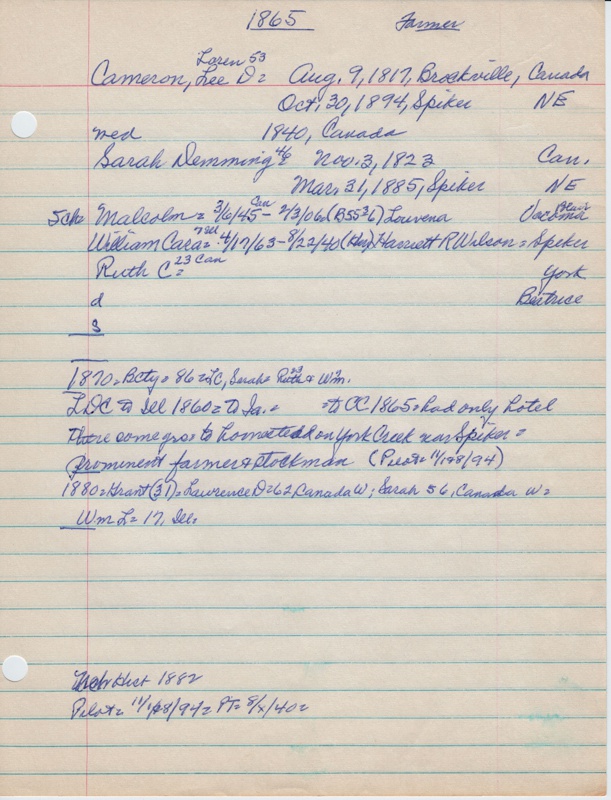 1865 Farmer
Loren 53
Cameron, Lee D= Aug. 9, 1817, Brockville, Canada
Oct. 30, 1894, Spiker NE
med 1840, Canada
Sarah Demming 48 Nov. 3, 1823 Can.
Mar. 31, 1885, Spiker NE
5ch= Malcolm= 3/6/45 Can - 2/3/06 (B5536) Louvena Vacoma Blair
William Cara= 4/17/63 - 8/22/40 (Her) Harriett R Wilson= Spiker
Ruth C= 23 Can York
d Beatrice
s
1870= Bcty= 86= LC, Sarah= Ruth 23 & Wm.
LDC to Ill 1860= to Ia.= =to CC 1865= had only hotel
there some yrs= to homestead on York Creek near Spiker=
prominent farmer & stockman (Pilot= 11/28/94)
1880= Grant (31)= Lawrence D= 62 Canada W; Sarah 56, Canada W=
Wm L= 17, Ill=
Hist 1882
Pilot= 11/28/94= PT= 8/x/40=